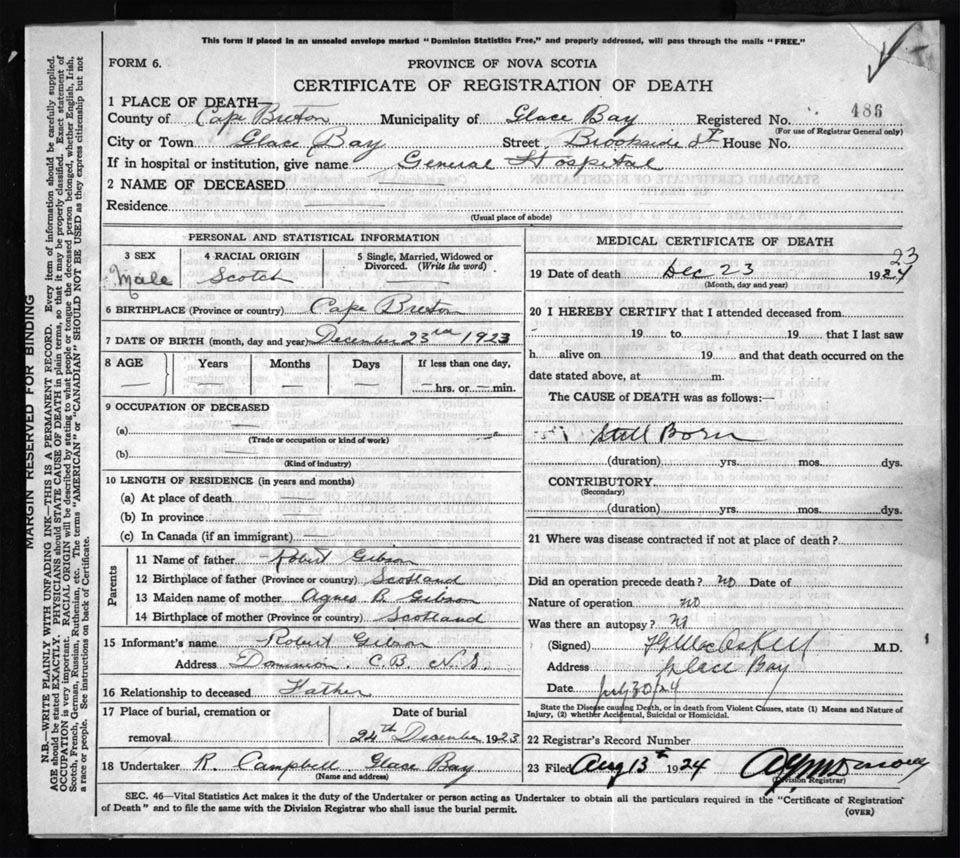 This form if placed in an unsealed envelope marked "Dominion Statistics Free," and properly addressed, will pass through the mails "FREE."
FORM 6.
PROVINCE OF NOVA SCOTIA
CERTIFICATE OF REGISTRATION OF DEATH
1 PLACE OF DEATH—
County of Cape Breton Municipality of Glace Bay Registered No. 486
(For use of Registrar General only)
City or Town Glace Bay Street Brookside St House No.
If in hospital or institution, give name General Hospital
2 NAME OF DECEASED —
Residence —
(Usual place of abode)
PERSONAL AND STATISTICAL INFORMATION
3 SEX
Male
4 RACIAL ORIGIN
Scotch
5 Single, Married, Widowed or Divorced. (Write the word)
—
6 BIRTHPLACE (Province or country) Cape Breton
7 DATE OF BIRTH (month, day and year) December 23rd 1923
8 AGE Years Months Days If less than one day,
— — — — —hrs. or —min.
9 OCCUPATION OF DECEASED
(a) —
(Trade or occupation or kind of work)
(b) —
(Kind of industry)
10 LENGTH OF RESIDENCE (in years and months)
(a) At place of death —
(b) In province —
(c) In Canada (if an immigrant) —
Parents
11 Name of father Robert Gibson
12 Birthplace of father (Province or country) Scotland
13 Maiden name of mother Agnes B. Gibson
14 Birthplace of mother (Province or country) Scotland
15 Informant's name Robert Gibson
Address Dominion. C.B. N.S.
16 Relationship to deceased Father
17 Place of burial, cremation or removal
Date of burial
24th December 1923
18 Undertaker R. Campbell Glace Bay
(Name and address)
MEDICAL CERTIFICATE OF DEATH
19 Date of death Dec 23 1924 23
(Month, day and year)
20 I HEREBY CERTIFY that I attended deceased from
19 to 19 that I last saw
h alive on 19 and that death occurred on the
date stated above, at m.
The CAUSE of DEATH was as follows:—
Still Born
(duration) yrs. mos. dys.
CONTRIBUTORY
(Secondary)
(duration) yrs. mos. dys.
21 Where was disease contracted if not at place of death?
Did an operation precede death? no Date of
Nature of operation no
Was there an autopsy?
(Signed) M.D.
Address Glace Bay
Date July 30/24
State the Disease causing Death, or in death from Violent Causes, state (1) Means and Nature of
Injury, (2) whether Accidental, Suicidal or Homicidal.
22 Registrar's Record Number
23 Filed Aug 13th 1924
(Division Registrar)
SEC. 46—Vital Statistics Act makes it the duty of the Undertaker or person acting as Undertaker to obtain all the particulars required in the "Certificate of Registration
of Death" and to file the same with the Division Registrar who shall issue the burial permit.
(OVER)
MARGIN RESERVED FOR BINDING
N.B.—WRITE PLAINLY WITH UNFADING INK—THIS IS A PERMANENT RECORD. Every item of information should be carefully supplied.
AGE should be stated EXACTLY. PHYSICIANS should STATE CAUSE OF DEATH in plain terms, so that it may be properly classified. Exact statement of
OCCUPATION is very important. RACIAL ORIGIN will be described by stating to what people or tongue the deceased person belonged, whether English, Irish,
Scotch, French, German, Russian, Ruthenian, etc. The terms "AMERICAN" or "CANADIAN" SHOULD NOT BE USED as they express citizenship but not
a race or people. See instructions on back of Certificate.